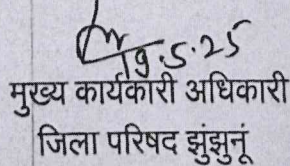 19.5.25
मुख्य कार्यकारी अधिकारी
जिला परिषद झुंझुनूं